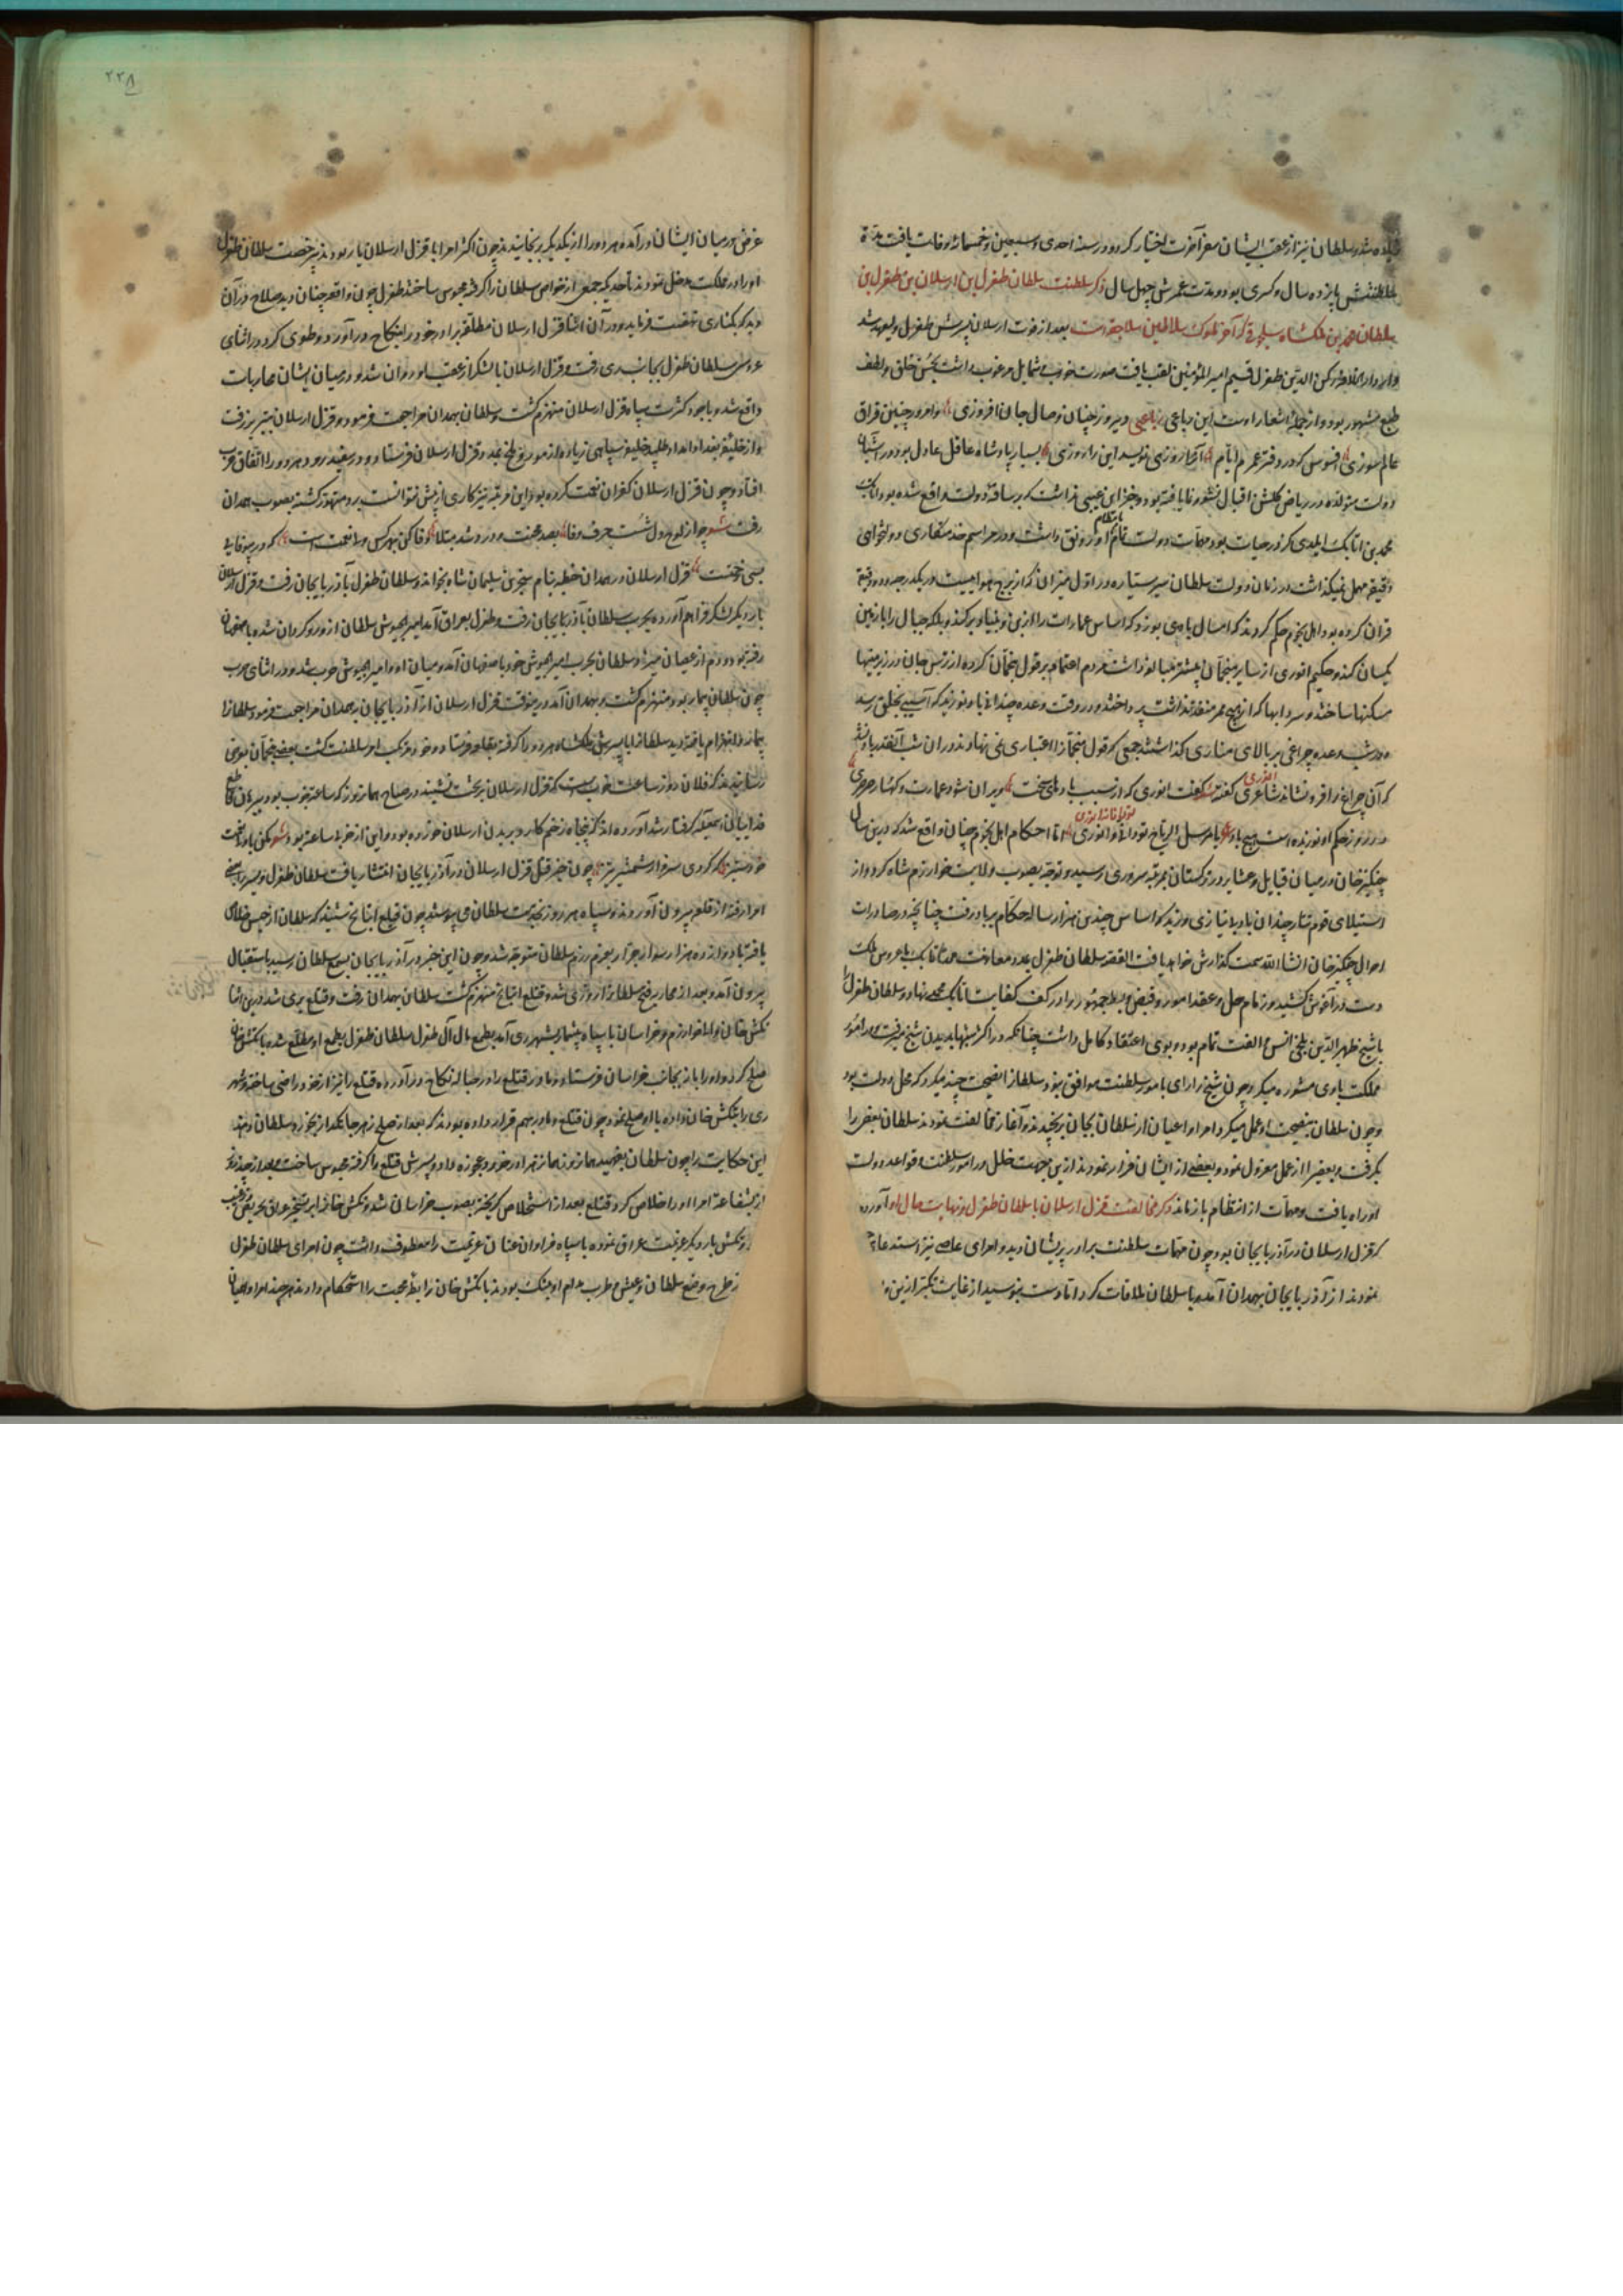 شد و سلطان نیز از عقب ایشان سفر آخرت اختیار کرد و در سنه احدی و سبعین و خمسمائه وفات یافت مدة
سلطنتش پانزده سال و کسری بود و مدت عمرش چهل سال ذکر سلطنت سلطان طغرل بن ارسلان بن طغرل بن
سلطان محمد بن ملکشاه سلجوقی که آخر ملوک سلاطین سلاجقه است بعد از فوت ارسلان پسرش طغرل ولیعهد شد
و از دار الخلافه رکن الدین طغرل قسیم امیر المؤمنین لقب یافت صورت خوب و شمایل مرغوب داشت بحسن خلق و لطف
طبع مشهور بود و از جمله اشعار اوست این رباعی رباعی دیروز چنان وصال جان افروزی و امروز چنین فراق
عالم سوزی افسوس که در دفتر عمرم ایام آنرا روزی نویسد این را روزی بسیار پادشاه عاقل عادل بود و در
دولت متولد و در ریاض گلشن اقبال نشو و نما یافته بود و جز این عیبی نداشت که بر ساقه دولت واقع شده بود اتابک
محمد بن اتابک ایلدگز در حیات بود مهمات دولت او رونق داشت و در مراسم خدمتکاری و دولتخواهی
دقیقه مهمل نمیگذاشت در زمان دولت سلطان سیر ستیاره در اول میزان که از برج هواییست در یکدرجه و دقیقه
قران کرده بود اهل نجوم حکم کردند که امسال بادی بوزد که اساس عمارات را از بن و بنیاد برکند بلکه جبال را با زمین
یکسان کند و حکیم انوری از سایر منجمان بیشتر مبالغه داشت مردم اعتماد بر قول منجمان کرده از ترس جان در زیر زمینها
مسکنها ساختند و سردابها که از هیچ ممر منفذ نداشت پرداختند و در وقت وعده چندانی باد نوزید که آسیبی بخلق رسد
و در شب وعده چراغی بر بالای مناری گذاشتند جمعی که قول منجمان را اعتباری نمی نهادند در آن شب آنقدر باد نشد
که آن چراغ را فرو نشاند شاعری گفته گفت انوری که از سبب بادهای سخت ویران شود عمارت و کهسار
در روز حکم او نوزیده است هیچ باد یا مرسل الریاح تو دانی و انوری اما احکام اهل نجوم چنان واقع شد که در این سال
چنگیز خان در میان قبایل و عشایر در ترکستان بمرتبه سروری رسید و توجه بصوب ولایت خوارزم شاه کرد و از
استیلای قوم تتار چندان باد بی نیازی وزید که اساس چندین هزار ساله حکام بر باد رفت چنانچه در
احوال چنگیز خان انشاء الله سمت گذارش خواهد یافت القصه سلطان طغرل بمدد و معاونت محمد اتابک با عروس ملک
دست در آغوش کشید و زمام حل و عقد امور و قبض و بسط جمهور را در کف کفایت اتابک محمد نهاد و سلطان طغرل را
با شیخ ظهیر الدین بلخی انس و الفت تمام بود و بوی اعتقاد کامل داشت چنانکه در اکثر شبها بدیدن شیخ میرفت و در امور
مملکت با وی مشوره میکرد چون شیخ را رای بامور سلطنت موافق بود سلطان را نصیحت چند میکرد که محل دولت بود
و چون سلطان بنصیحت او عمل میکرد امرا و اعیان از سلطان بجان برنجیدند و آغاز مخالفت نمودند سلطان بعضی را
بگرفت و بعضی را از عمل معزول نمود و بعضی از ایشان فرار نمودند از این جهت خلل در امور سلطنت و قواعد دولت
او راه یافت و مهمات از انتظام بازماند ذکر مخالفت قزل ارسلان با سلطان طغرل و نهایت حال او آورده
که قزل ارسلان در آذربایجان بود چون مهمات سلطنت برادر پریشان دید و امرای عاصی نیز استدعا
نمودند از آذربایجان بهمدان آمده با سلطان ملاقات کرد اما دست نبوسید از غایت تکبر از این
۲۲۸
غرض در میان ایشان درآمده هر دو را از یکدیگر برنجانیدند چون اکثر امرا با قزل ارسلان یار بودند بی رخصت سلطان طغرل
او را در مملکت مدخل نمودند تا حدیکه جمعی از خواص سلطان را گرفته محبوس ساختند طغرل چون واقعه چنان دید صلاح در آن
دید که بکناری نهضت فرماید و در آن اثنا قزل ارسلان مطلقه برادر خود را بنکاح درآورد و طوی کرد در اثنای
عروسی سلطان طغرل بجانب ری رفت و قزل ارسلان با لشکر از عقب او روان شد و در میان ایشان محاربات
واقع شد و با وجود کثرت سپاه قزل ارسلان منهزم گشت و سلطان بهمدان مراجعت فرمود و قزل ارسلان بتبریز رفت
و از خلیفه بغداد امداد طلبید خلیفه سپاهی زیاده از مور و ملخ بمدد قزل ارسلان فرستاد و در سفیدرود هر دو را اتفاق حرب
افتاد و چون قزل ارسلان کفران نعمت کرده بود این مرتبه نیز کاری از پیش نتوانست برد منهزم گشته بصوب همدان
رفت شعر چو از لوح دل شست حرف وفا بصد محنت و درد شد مبتلا وفا کن بهر کس نعمت است که در بیوفایی
بسی زحمت قزل ارسلان در همدان خطبه بنام سنجر بن سلیمان شاه بخواند و سلطان طغرل بآذربایجان رفت و قزل ارسلان
بار دیگر لشکر فراهم آورده بحرب سلطان بآذربایجان رفت و طغرل بعراق آمد امیر الجیوش سلطان از او روگردان شده باصفهان
رفته بود و دم از عصیان میزد سلطان بحرب امیر الجیوش خود باصفهان آمد و میان او و امیر الجیوش حرب شد و در اثنای حرب
چون سلطان بیمار بود منهزم گشت و بهمدان آمد در این وقت قزل ارسلان از آذربایجان بهمدان مراجعت فرمود سلطان را
بیمار و انهزام یافته دید سلطان را با پسرش ملکشاه هر دو را گرفته بقلعه فرستاد و خود مرتکب امر سلطنت گشت بعضی منجمان بعرض
رسانیدند که فلان روز ساعت خوب است که قزل ارسلان بر تخت نشیند در صباح همانروز که ساعت خوب بود
فدائیان گرفتار شد آورده اند که پنجاه زخم کارد بر بدن ارسلان خورده بود و این از خیر ساعت بود شعر مکن با ولی نعمت
خود ستیز که گردی سزاوار شمشیر تیز چون خبر قتل قزل ارسلان در آذربایجان انتشار یافت سلطان طغرل و پسر را
امرا رفته از قلعه بیرون آوردند و سپاه هر روز بخدمت سلطان می پیوستند چون قتلغ اینانج شنید که سلطان از حبس خلاصی
یافته با دوازده هزار سوار جرار بعزم رزم سلطان متوجه شد و چون این خبر در آذربایجان بسمع سلطان رسید باستقبال
بیرون آمد و بعد از محاربه فتح سلطان را روزی شد و قتلغ اینانج منهزم گشت سلطان بهمدان رفت و قتلغ بری شد در این اثنا
تکش خان والی خوارزم و خراسان با سپاه بیشمار بشهر ری آمد بطمع مال آل طغرل سلطان طغرل بطمع او مطلع شده با تکش خان
صلح کرد و او را باز بجانب خراسان فرستاد و مادر قتلغ را در حباله نکاح درآورد و قتلغ را نیز از خود راضی ساخته و شهر
ری را بتکش خان داده با او صلح نمود چون قتلغ و مادر بهم قرار داده بودند که بعد از صلح زهر جانگداز بخورد سلطان دهند
این حکایت را چون سلطان فهمید همان روز همان زهر او را خورد عجوزه داد و پسرش قتلغ را گرفته محبوس ساخت و بعد از چند گاه
از شفاعت امرا او را خلاص کرد و قتلغ بعد از استخلاص گریخته بصوب خراسان شد و تکش خان را بر تسخیر عراق تحریض نمود
و تکش بار دیگر عزیمت عراق نموده با سپاه فراوان عنان عزیمت را معطوف داشت چون امرای سلطان طغرل
از طرح وضع سلطان و عیش و طرب مدام او بتنگ بودند با تکش خان رابطه محبت را استحکام دادند هر چند امرا و اعیان